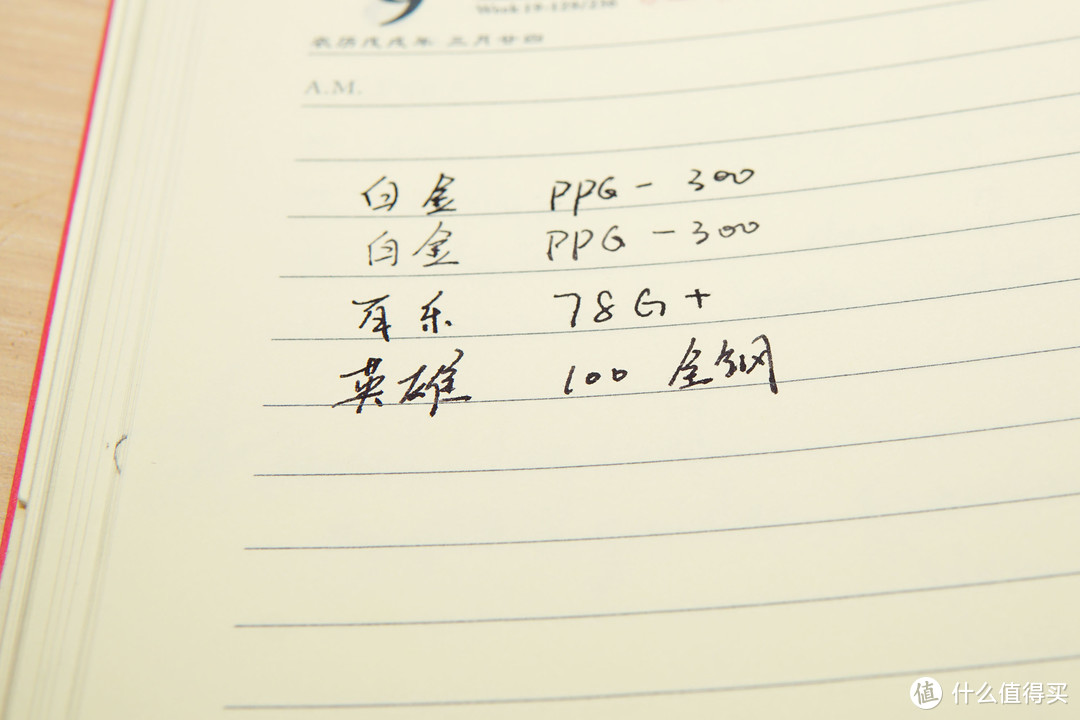 9
Week 19-129/236
农历戊戌年 三月廿四
A.M.
白金 PPG-300
白金 PPG-300
百乐 78G+
英雄 100 全钢
值 什么值得买